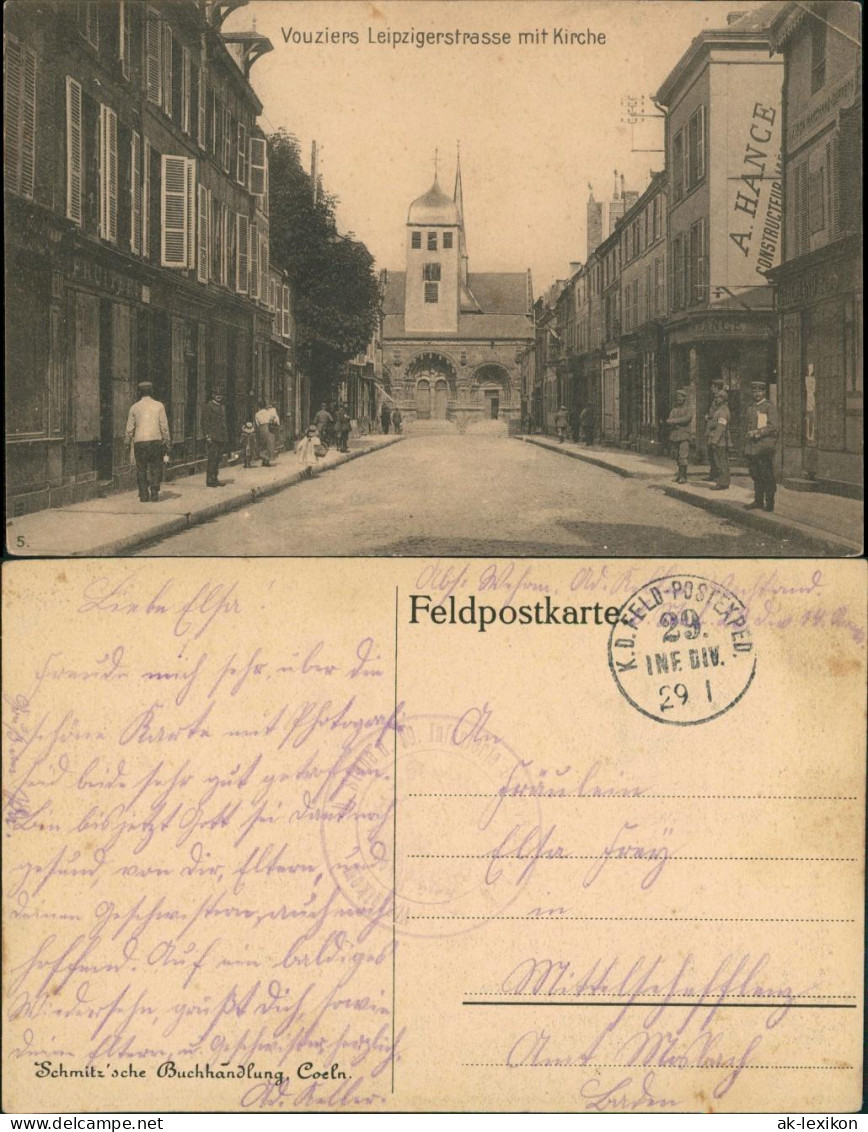 Vouziers Leipzigerstrasse mit Kirche
A. HANCE
CONSTRUCTEUR
HANCE
5.
Liebe Elsa!
Freude mich sehr, über die
schöne Karte mit Photografie
seid beide sehr gut getroffen.
Bin bis jetzt Gott sei Dank noch
gesund, von Dir, Eltern, und
deinen Geschwistern, auch noch
hoffend. Auf ein baldiges
Wiedersehn, grüßt Dich, sowie
deine Eltern, u. Geschwister herzlich,
Ad. Keller.
Schmitz'sche Buchhandlung, Coeln.
Abs: Wehrm. Ad. Keller
Feldpostkarte
K.D. FELD-POSTEXPED.
29.
INF. DIV.
29 1
An
Fräulein
Elsa Frey
in
Mittelschefflenz
Amt Mosbach
Baden
ak-lexikon.com